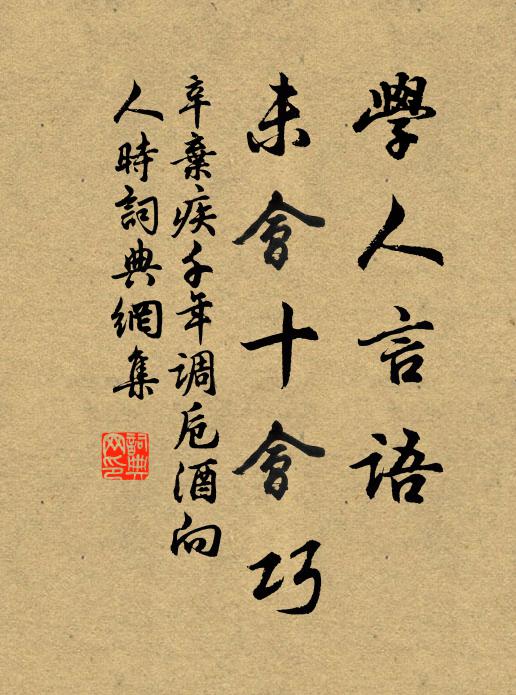 學人言語
未會十會巧
辛棄疾千年调卮酒向
人時詞典網集
詞典
网印